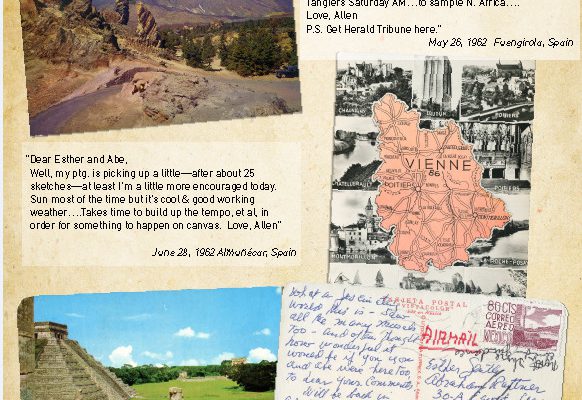 Tangiers Saturday AM...to sample N. Africa....
Love, Allen
P.S. Get Herald Tribune here."
May 26, 1962 Fuengirola, Spain
"Dear Esther and Abe,
Well, my ptg. is picking up a little—after about 25
sketches—at least I'm a little more encouraged today.
Sun most of the time but it's cool & good working
weather....Takes time to build up the tempo, et al, in
order for something to happen on canvas. Love, Allen"
June 28, 1962 Almuñécar, Spain
CHAUVIGNY
LOUDUN
POITIERS
VIENNE
86
POITIERS
CHATELLERAULT
POITIERS
MONTMORILLON
ROCHE-POSAY
What a
world this is – saw
all the many murals
too – and often thought
how wonderful it
would be if you
and Abe were here too
to hear your comments
Will be back in
TARJETA POSTAL
AIRMAIL
80 CTS
CORREO
AEREO
MEXICO
Esther
Abraham Rattner
30-A